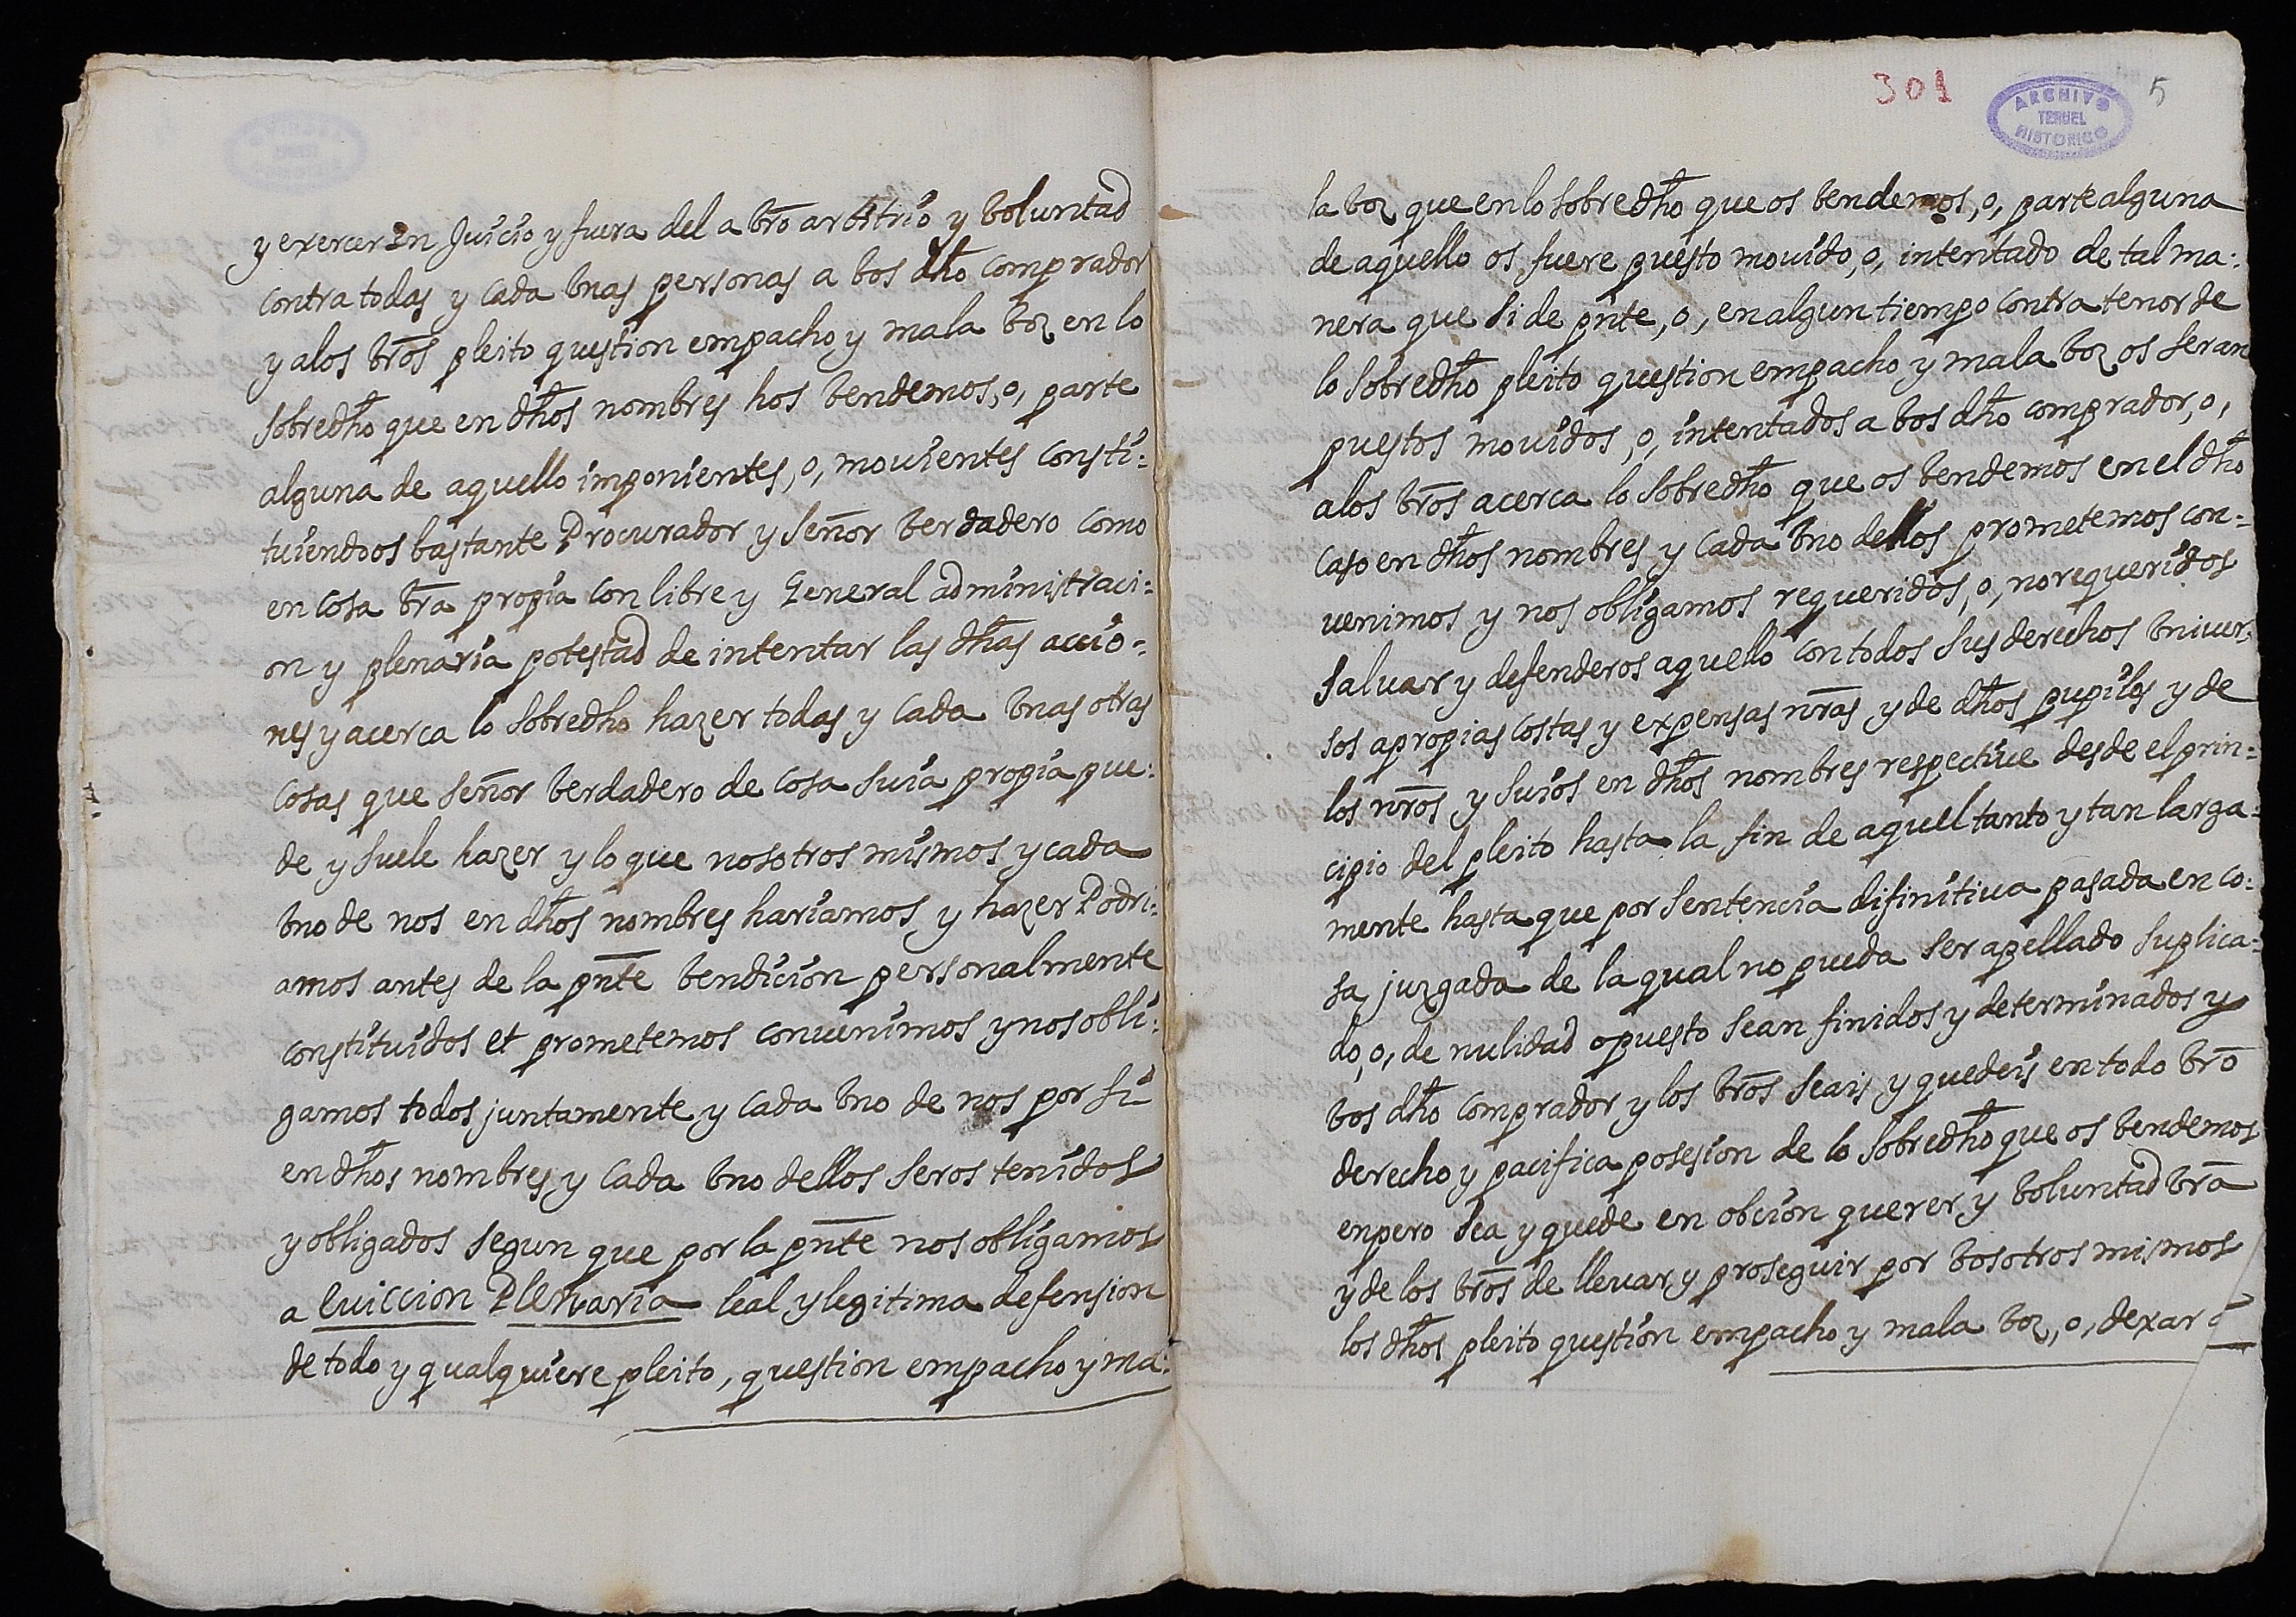 y exercer en Juicio y fuera del a bro arbitrio y boluntad
contra todas y cada bnas personas a bos dho comprador
y a los bros pleito question empacho y mala boz en lo
sobredho que en dhos nombres hos bendemos, o, parte
alguna de aquello imponientes, o, mouientes consti:
tuiendoos bastante Procurador y señor berdadero como
en cosa bra propia con libre y General administraci:
on y plenaria potestad de intentar las dhas accio=
nes y acerca lo sobredho hazer todas y cada bnas otras
cosas que señor berdadero de cosa suia propia pue:
de y suele hazer y lo que nosotros mismos y cada
bno de nos en dhos nombres hariamos y hazer Podri:
amos antes de la pnte bendicion personalmente
constituidos et prometemos conuenimos y nos obli:
gamos todos juntamente y cada bno de nos por si
en dhos nombres y cada bno dellos seros tenidos
y obligados segun que por la pnte nos obligamos
a euiccion Plenaria leal y legitima defension
de todo y qualquiere pleito, question empacho y ma:
301
ARCHIVO
TERUEL
HISTORICO
5
la boz que en lo sobredho que os bendemos, o, parte alguna
de aquello os fuere puesto mouido, o, intentado de tal ma:
nera que si de pnte, o, en algun tiempo contra tenor de
lo sobredho pleito question empacho y mala boz os seran
puestos mouidos, o, intentados a bos dho comprador, o,
a los bros acerca lo sobredho que os bendemos en el dho
caso en dhos nombres y cada bno dellos prometemos con=
uenimos y nos obligamos requeridos, o, no requeridos
saluar y defenderos aquello con todos sus derechos bniuer:
sos a propias costas y expensas nras y de dhos pupilos y de
los nros y suios en dhos nombres respectiue desde el prin=
cipio del pleito hasta la fin de aquel tanto y tan larga:
mente hasta que por sentencia difinitiua pasada en co:
sa juzgada de la qual no pueda ser apellado suplica=
do, o, de nulidad opuesto sean finidos y determinados y
bos dho comprador y los bros seais y quedeis en todo bro
derecho y pacifica posesion de lo sobredho que os bendemos
enpero sea y quede en obcion querer y boluntad bra
y de los bros de lleuar y proseguir por bosotros mismos
los dhos pleito question empacho y mala boz, o, dexar a